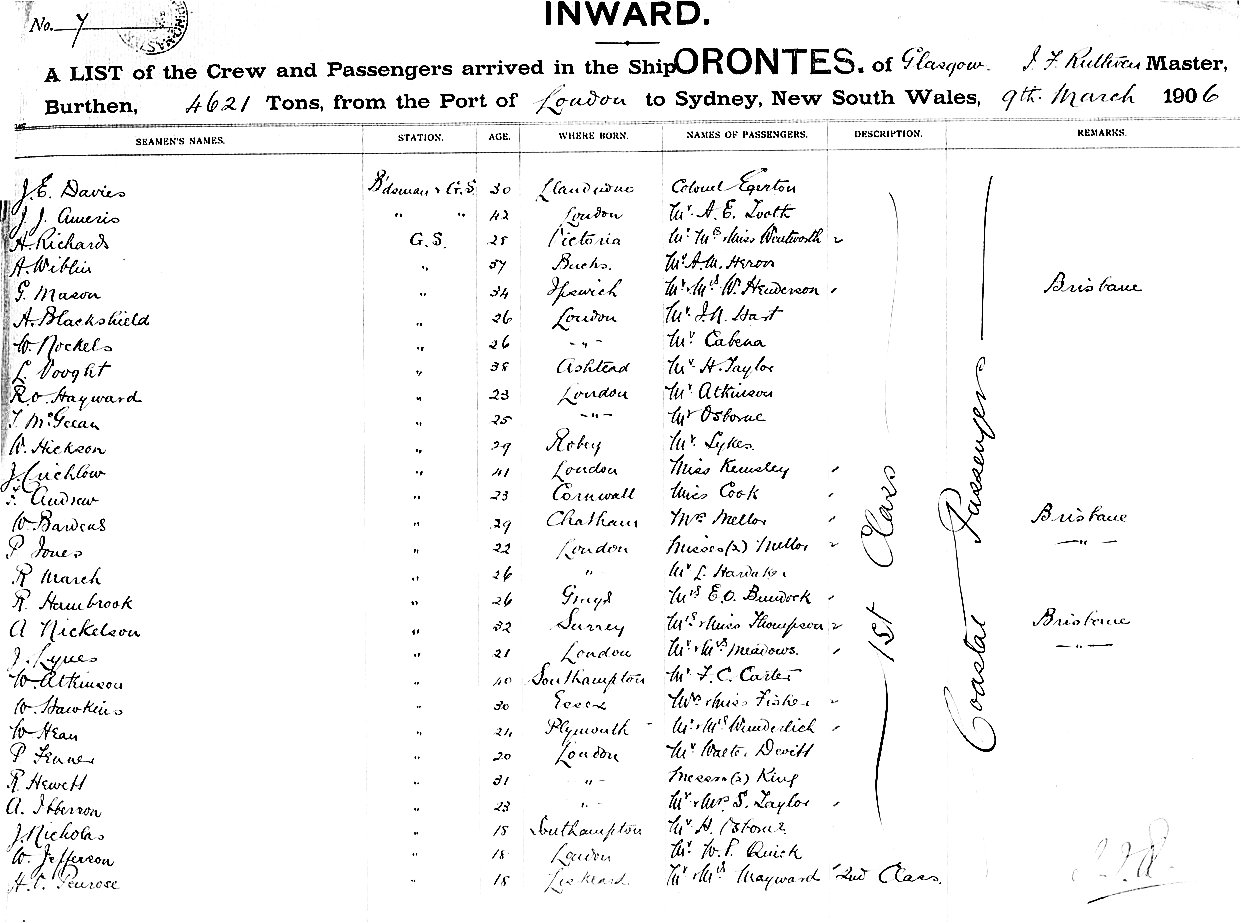 No. 7
INWARD.
A LIST of the Crew and Passengers arrived in the Ship ORONTES. of Glasgow. J F Ruthven Master,
Burthen, 4621 Tons, from the Port of London to Sydney, New South Wales, 9th March 1906
SEAMEN'S NAMES. STATION. AGE. WHERE BORN. NAMES OF PASSENGERS. DESCRIPTION. REMARKS.
J. E. Davies B'dsman & G.S. 30 Colonel Egerton
J. J. Ameris " " 42 London Mr. A. E. Tooth
H. Richards G.S. 25 Victoria Mr. Mrs & Miss Wentworth
A. Wiblin " 37 Bucks. Mr. A. M. Heron
G. Mason " 34 Ipswich Mr. & Mrs W. Henderson Brisbane
A. Blackshield " 26 London Mr. J. N. Hart
W. Nockels " 26 - " - Mr. Cabena
L. Vooght " 38 Ashtead Mr. H. Taylor
R. O. Hayward " 23 London Mr. Atkinson
T. McGeean " 25 - " - Mr Osborne
W. Hickson " 29 Robey Mr. Sykes.
J. Crichlow " 41 London Miss Kemsley
Andrew " 23 Cornwall Miss Cook
W. Bardens " 29 Chatham Mrs Mellor Brisbane
P. Jones " 22 London Misses (2) Mellor - " -
R March " 26 " Mr L.
R. Hambrook " 26 Grays Mrs E. O. Burdock
A Nickelson " 32 Surrey Mrs & Miss Thompson Brisbane
J. Lynes " 21 London Mr. & Mrs Meadows. - " -
W. Atkinson " 40 Southampton Mr. F. C. Carter
W. Hawkins " 30 Essex Mrs & Miss Fisher
W Hean " 24 Plymouth Mr. & Mrs Wunderlich
P Fenner " 20 London Mr Walter Devitt
R Hewett " 31 - " - Messrs (2) King
A. Ibberson " 23 - " - Mr. & Mrs. S. Taylor
J. Nicholas " 18 Southampton Mr H. Osborne
W. Jefferson " 18 London Mr. W. P. Quick
H. C. Penrose " 18 Liskeard Mr & Mrs Mayward 2nd Class.
1st Class
Coastal Passengers